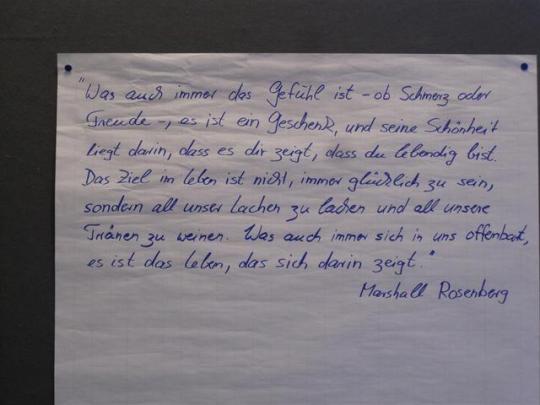 "Was auch immer das Gefühl ist - ob Schmerz oder
Freude -, es ist ein Geschenk, und seine Schönheit
liegt darin, dass es dir zeigt, dass du lebendig bist.
Das Ziel im Leben ist nicht, immer glücklich zu sein,
sondern all unser Lachen zu lachen und all unsere
Tränen zu weinen. Was auch immer sich in uns offenbart,
es ist das Leben, das sich darin zeigt."
Marshall Rosenberg